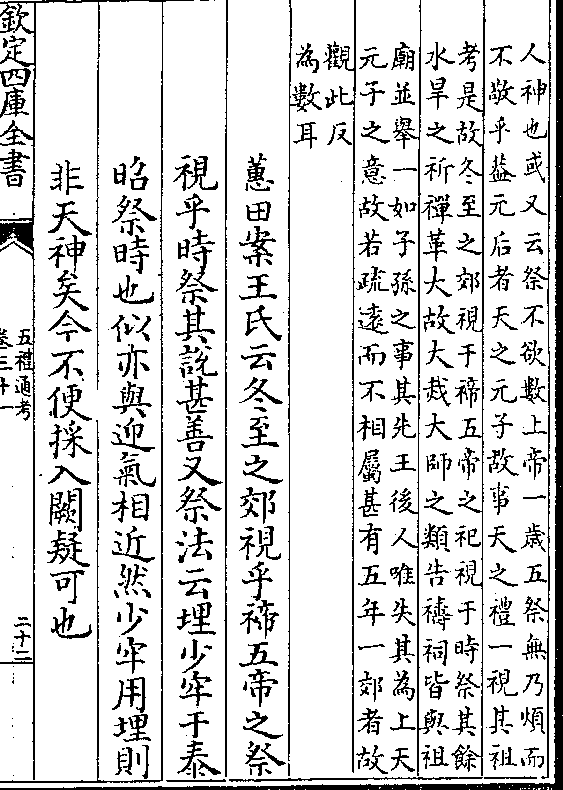 人神也或又云祭不欲數上帝一歲五祭無乃煩而
不敬乎蓋元后者天之元子故事天之禮一視其祖
考是故冬至之郊視于禘五帝之祀視于時祭其餘
水旱之祈禪革大故大烖大師之類告禱祠皆與祖
廟並舉一如子孫之事其先王後人唯失其為上天
元子之意故若疏逺而不相屬甚有五年一郊者故
觀此反
為數耳
蕙田案王氏云冬至之郊視乎禘五帝之祭
視乎時祭其說甚善又祭法云埋少牢于泰
昭祭時也似亦與迎氣相近然少牢用埋則
非天神矣今不便採入闕疑可也
欽定四庫全書
五禮通考
卷三十一
二十二